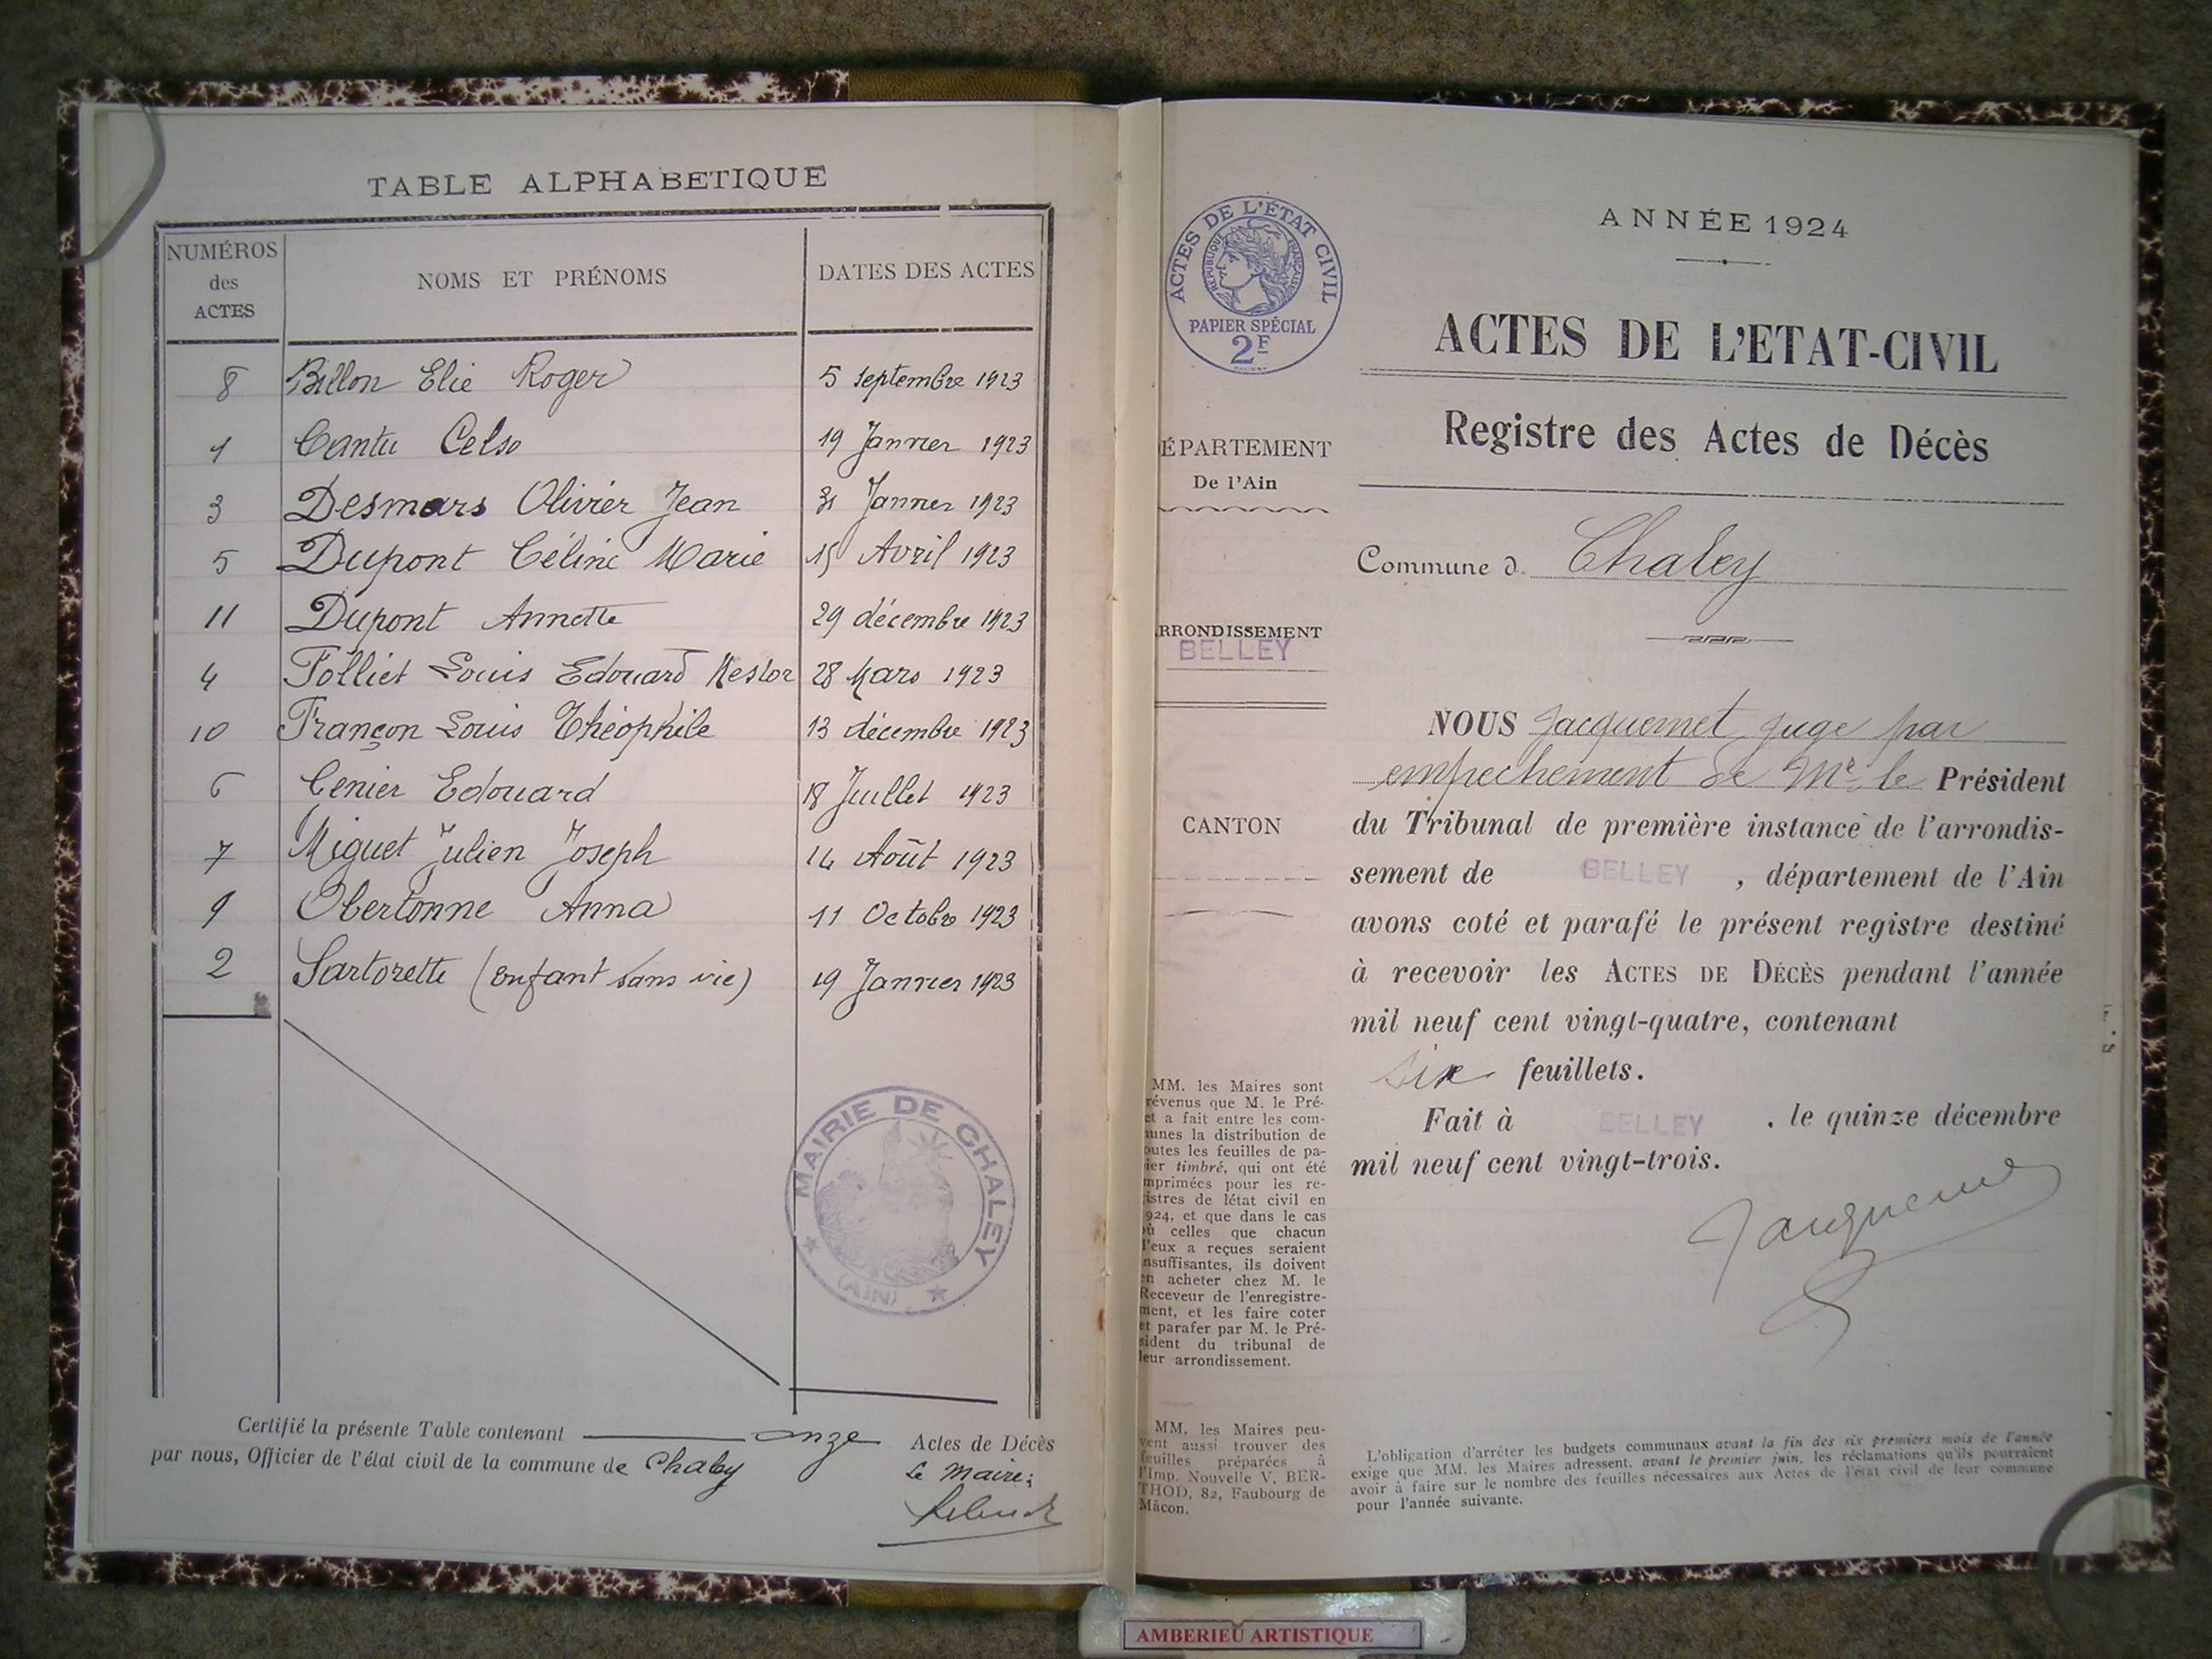 TABLE ALPHABETIQUE
NUMÉROS des ACTES
NOMS ET PRÉNOMS
DATES DES ACTES
8 Billon Elie Roger 5 septembre 1923
1 Cantu Celso 19 Janvier 1923
3 Desmars Olivier Jean 31 Janvier 1923
5 Dupont Céline Marie 15 Avril 1923
11 Dupont Annette 29 décembre 1923
4 Folliet Louis Edouard Nestor 28 Mars 1923
10 Françon Louis Théophile 13 décembre 1923
6 Genier Edouard 18 Juillet 1923
7 Miguet Julien Joseph 14 Août 1923
9 Obertonne Anna 11 Octobre 1923
2 Sartorette (enfant sans vie) 19 Janvier 1923
MAIRIE DE CHALEY
(AIN)
Certifié la présente Table contenant onze Actes de Décès
par nous, Officier de l'état civil de la commune de Chaley
Le Maire:
ACTES DE L'ÉTAT CIVIL
RÉPUBLIQUE FRANÇAISE
PAPIER SPÉCIAL
2F
ÉPARTEMENT
De l'Ain
RRONDISSEMENT
BELLEY
CANTON
MM. les Maires sont
révenus que M. le Pré-
et a fait entre les com-
unes la distribution de
outes les feuilles de pa-
ier timbré, qui ont été
mprimées pour les re-
istres de létat civil en
924, et que dans le cas
où celles que chacun
d'eux a reçues seraient
nsuffisantes, ils doivent
en acheter chez M. le
Receveur de l'enregistre-
ment, et les faire coter
et parafer par M. le Pré-
sident du tribunal de
leur arrondissement.
MM. les Maires peu-
vent aussi trouver des
feuilles préparées à
l'Imp. Nouvelle V. BER-
THOD, 82, Faubourg de
Mâcon.
ANNÉE 1924
ACTES DE L'ETAT-CIVIL
Registre des Actes de Décès
Commune d Chaley
NOUS Jacquemet, juge par
empechement de Mr. le Président
du Tribunal de première instance de l'arrondis-
sement de BELLEY, département de l'Ain
avons coté et parafé le présent registre destiné
à recevoir les ACTES DE DÉCÈS pendant l'année
mil neuf cent vingt-quatre, contenant
six feuillets.
Fait à BELLEY, le quinze décembre
mil neuf cent vingt-trois.
Jacquemet
L'obligation d'arrêter les budgets communaux avant la fin des six premiers mois de l'année
exige que MM. les Maires adressent, avant le premier juin, les réclamations qu'ils pourraient
avoir à faire sur le nombre des feuilles nécessaires aux Actes de l'état civil de leur commune
pour l'année suivante.
AMBERIEU ARTISTIQUE